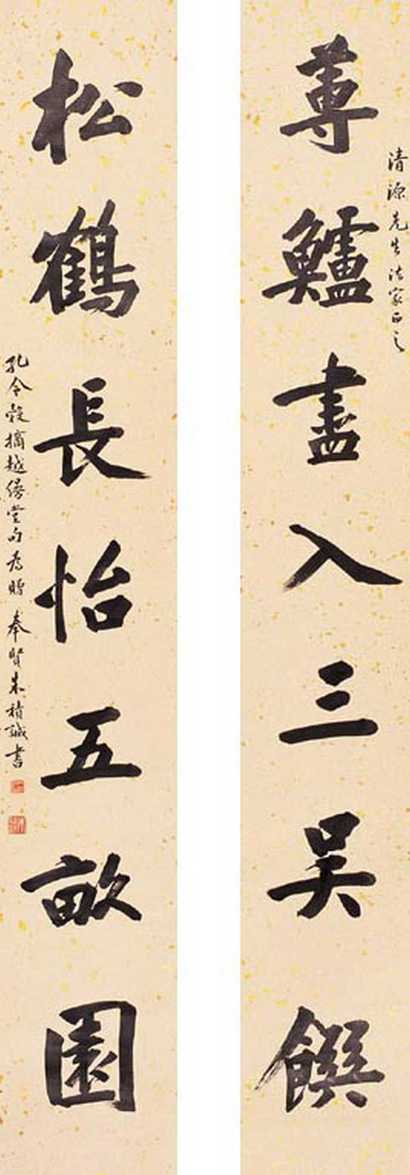 清源先生法家正之
蓴鱸盡入三吳饌
松鶴長怡五畝園
孔令穀摘越縵堂句為贈 奉賢朱積誠書